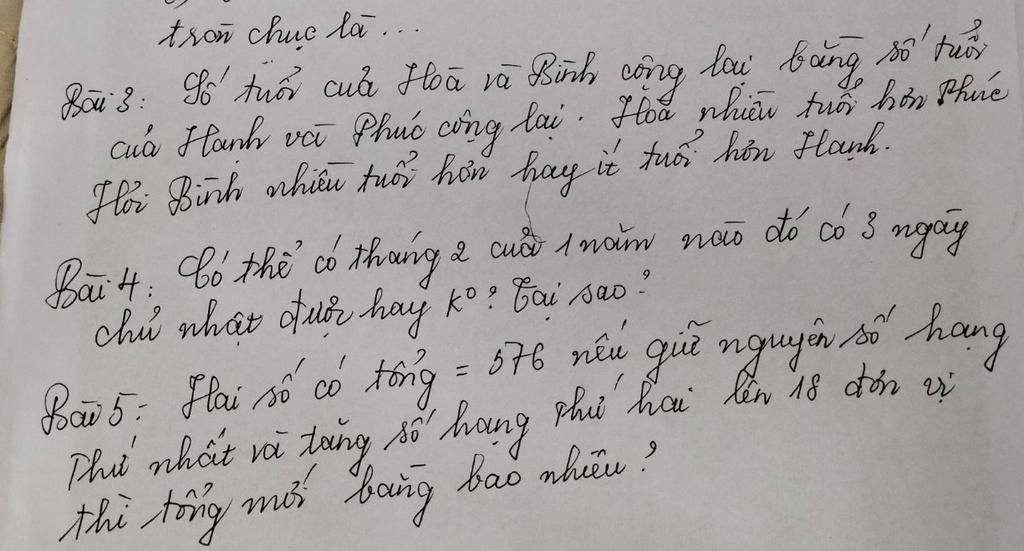 tròn chục là ...
Bài 3: Số tuổi của Hoà và Bình cộng lại bằng số tuổi
của Hạnh và Phúc cộng lại. Hoà nhiều tuổi hơn Phúc
Hỏi Bình nhiều tuổi hơn hay ít tuổi hơn Hạnh.
Bài 4: Có thể có tháng 2 của 1 năm nào đó có 3 ngày
chủ nhật được hay k°? Tại sao?
Bài 5: Hai số có tổng = 576 nếu giữ nguyên số hạng
thứ nhất và tăng số hạng thứ hai lên 18 đơn vị
thì tổng mới bằng bao nhiêu?